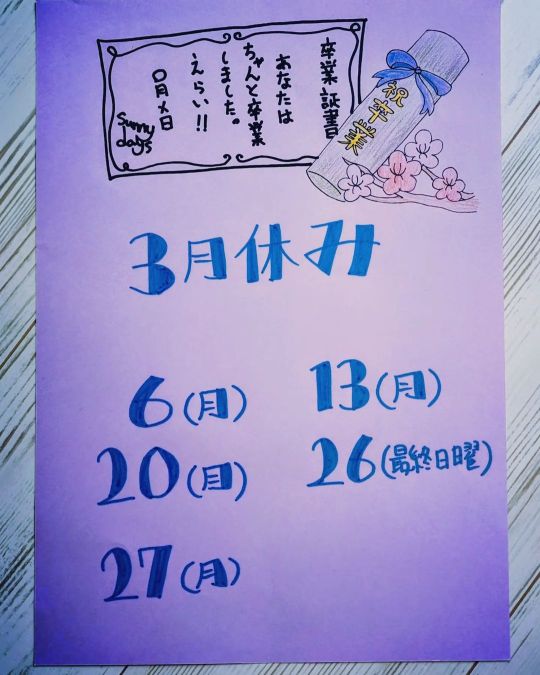 卒業証書
あなたは
ちゃんと卒業
しました。
えらい!!
〇月×日
Sunny
days
祝卒業
3月休み
6(月) 13(月)
20(月) 26(最終日曜)
27(月)